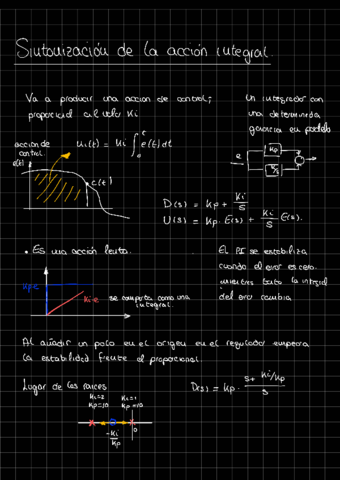 Sintonización de la acción integral.
Va a producir una accion de control;
proporcional al valor Ki
Un integrador con
una determinada
ganancia en paralelo
acción de
control.
e(t)
u₁(t) = Ki ∫₀ᵗ e(t) dt
e(t)
e
Kp
Ki/s
D(s) = Kp + Ki/s
U(s) = Kp · E(s) + Ki/s E(s).
• Es una acción lenta.
Kp·e
Ki·e
se comporta como una
integral.
El PI se estabiliza
cuando el error es cero.
mientras tanto la integral
del error cambia
Al añadir un polo en el origen en el regulador empeora
la estabilidad frente al proporcional.
Lugar de las raices
D(s) = Kp · (s + Ki/Kp)/s
Ki=2 Ki=1
Kp=10 Kp=10
-Ki/Kp
0